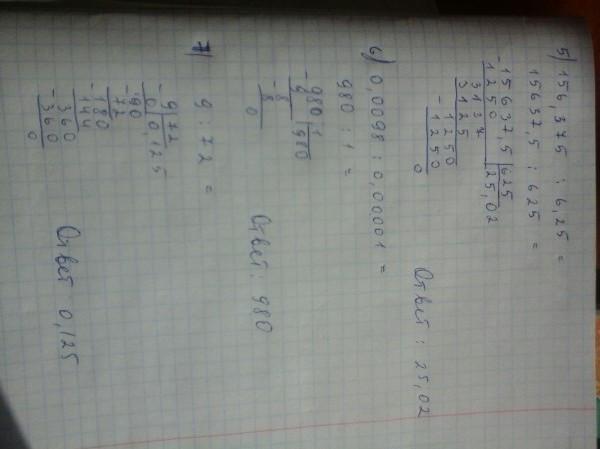 5) 156,375 : 6,25 =
15637,5 : 625 =
-15637,5 | 625
1250 | 25,02
3137
3125
-1250
1250
0
Ответ : 25,02
6) 0,0098 : 0,00001 =
980 : 1 =
-980 | 1
9 | 980
-8
8
0
Ответ : 980
7) 9 : 72 =
-9 | 72
0 | 0,125
-90
72
-180
144
-360
360
0
Ответ 0,125